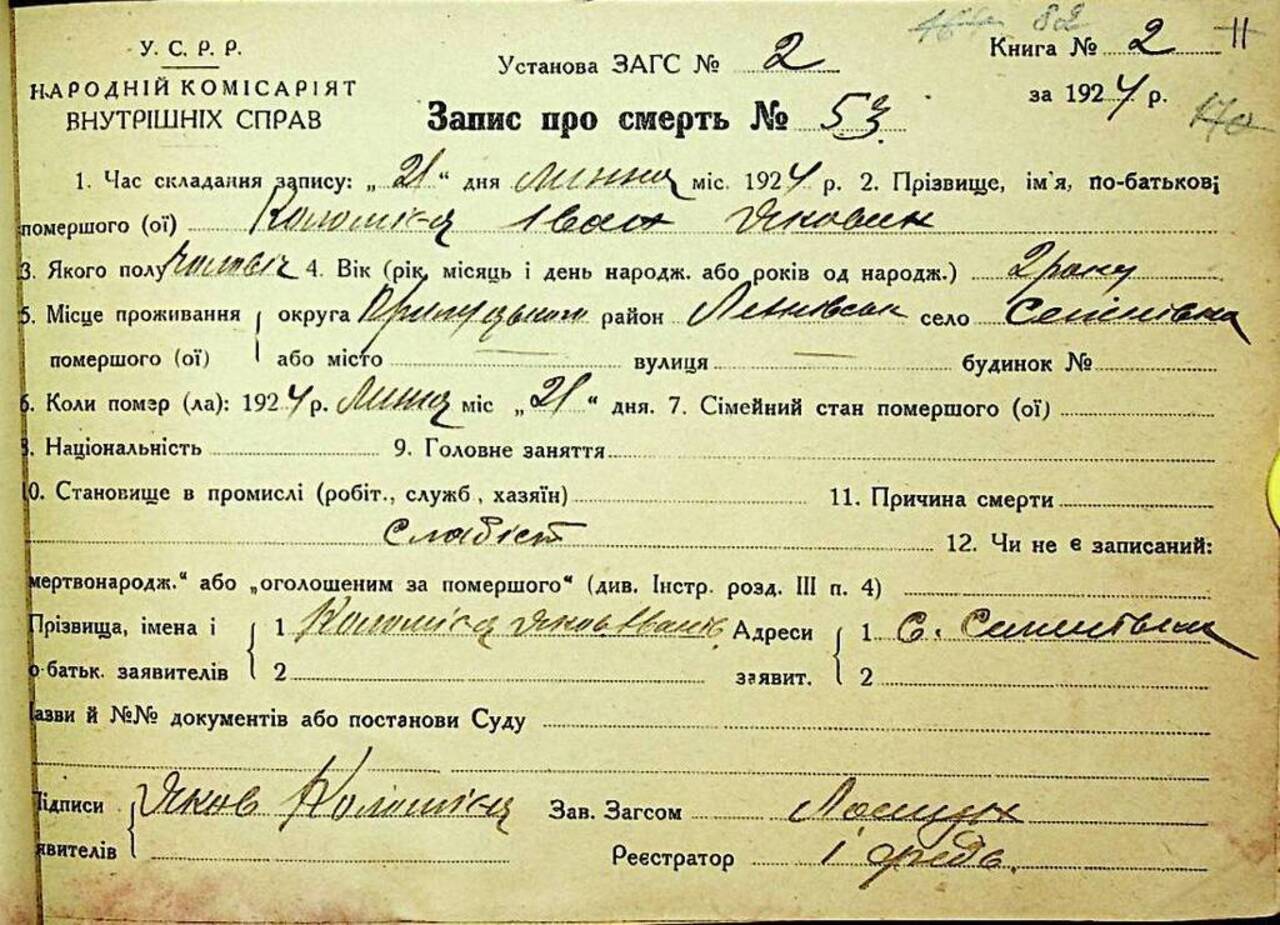 82 11
У. С. Р. Р. Установа ЗАГС № 2 Книга № 2
НАРОДНІЙ КОМІСАРІЯТ за 1924 р.
ВНУТРІШНІХ СПРАВ Запис про смерть № 53 170
1. Час складання запису: „21“ дня липня міс. 1924 р. 2. Прізвище, ім'я, по-батькові
помершого (ої) Коломієць Іван Якович
3. Якого полу чоловіч 4. Вік (рік, місяць і день народж. або років од народж.) 2 року
5. Місце проживання округа Прилуцького район село
помершого (ої) або місто вулиця будинок №
6. Коли помэр (ла): 1924 р. Липня міс „21“ дня. 7. Сімейний стан помершого (ої)
8. Національність 9. Головне заняття
10. Становище в промислі (робіт., служб., хазяїн) 11. Причина смерти
Слабіст 12. Чи не є записаний:
мертвонародж.“ або „оголошеним за помершого“ (див. Інстр. розд. III п. 4)
Прізвища, імена і 1 Коломієць Яков Іванів Адреси 1 С.
по батьк. заявителів 2 заявит. 2
Назви й №№ документів або постанови Суду
Підписи Яков Коломієць Зав. Загсом
явителів Реєстратор